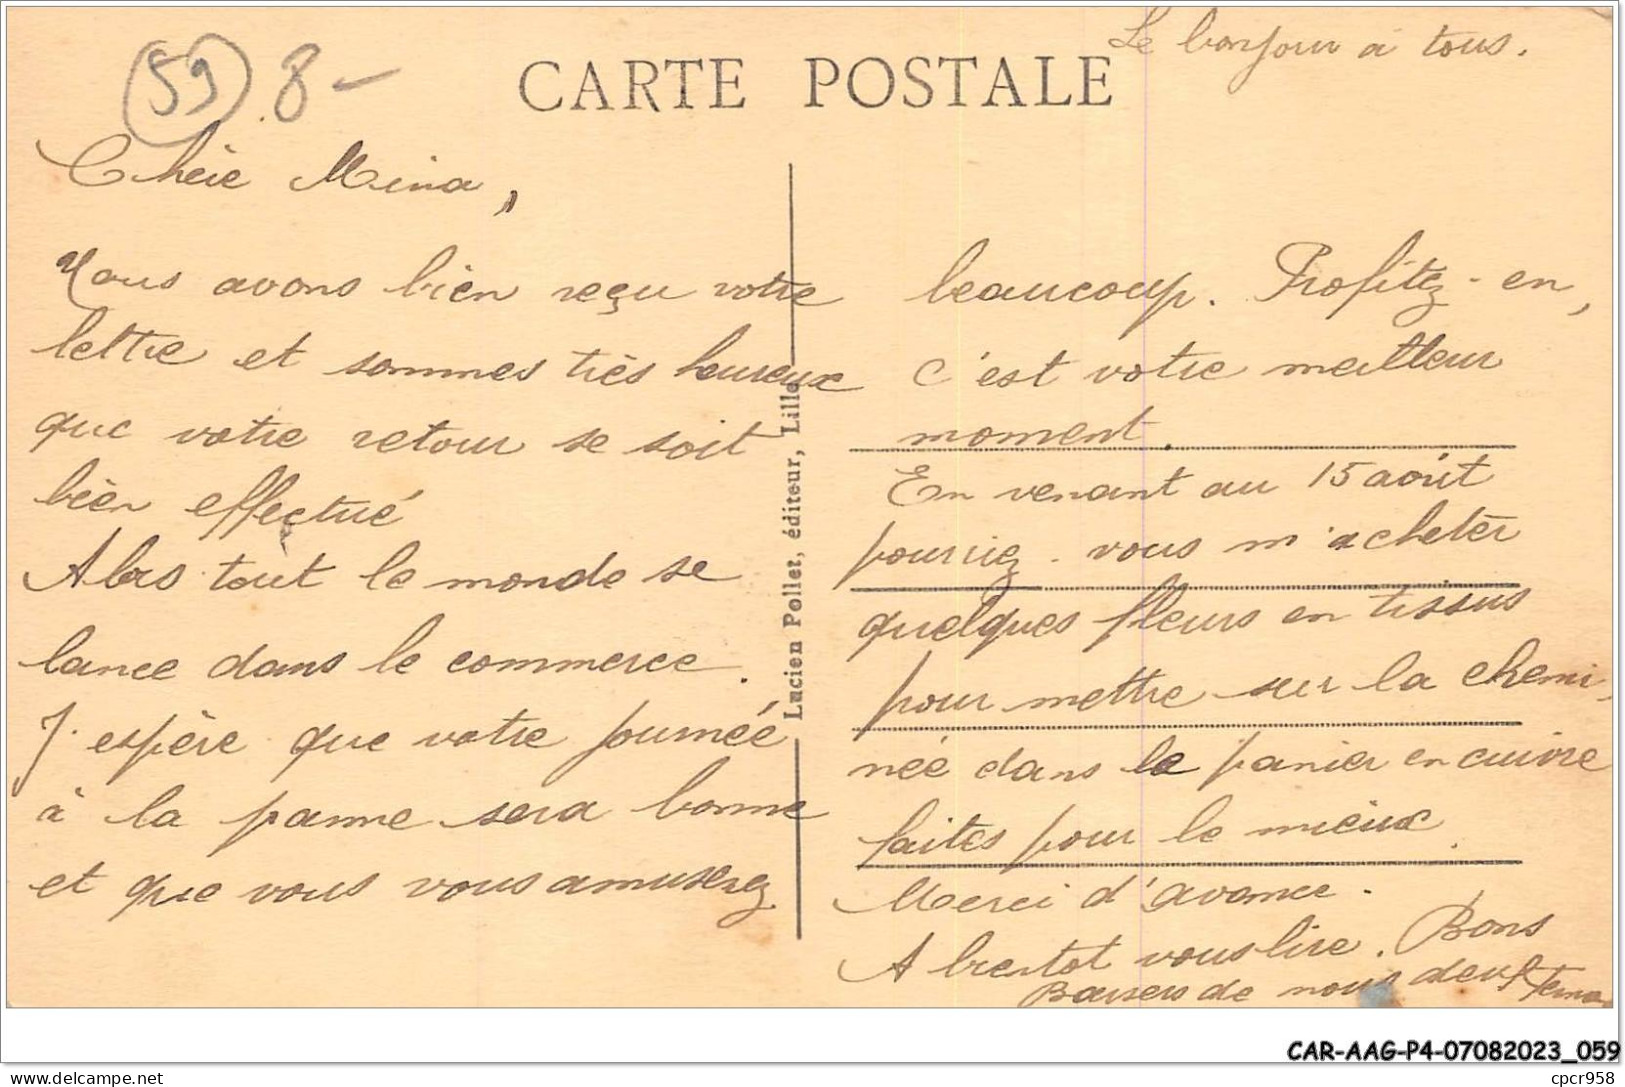 Le bonjour à tous.
59
8-
CARTE POSTALE
Chère Mina,
Nous avons bien reçu votre
lettre et sommes très heureux
que votre retour se soit
bien effectué
Alors tout le monde se
lance dans le commerce.
J'espère que votre journéé
à la panne sera bonne
et que vous vous amuserez
Lucien Pollet, éditeur, Lille
beaucoup. Profitez-en,
c'est votre meilleur
moment.
En venant au 15 août
pourriez-vous m'acheter
quelques fleurs en tissus
pour mettre sur la chemi-
née dans le panier en cuivre
faites pour le mieux.
Merci d'avance.
A bientot vous lire. Bons
Baisers de nous deux
CAR-AAG-P4-07082023_059
cpcr958